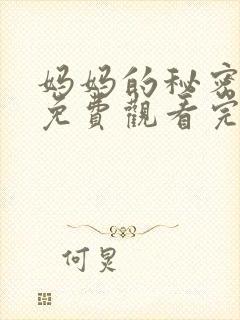 妈妈的秘密
免費觀看完
何炅